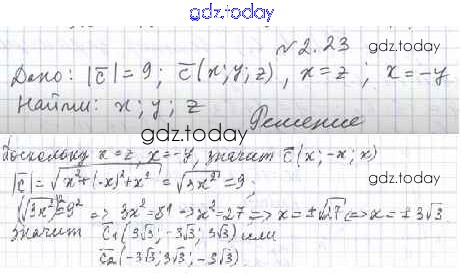 gdz.today
№2.23
gdz.today
Дано: |c̄| = 9; c̄(x; y; z), x = z; x = -y
Найти: x; y; z
gdz.today
Решение
gdz.today
Поскольку x = z, x = -y, значит c̄(x; -x; x)
|c̄| = √(x² + (-x)² + x²) = √(3x²) = 9;
(√(3x²))² = 9² => 3x² = 81 => x² = 27 => x = ±√27 => x = ±3√3
значит c̄₁(3√3; -3√3; 3√3) или
c̄₂(-3√3; 3√3; -3√3).
gdz.today
gdz.today